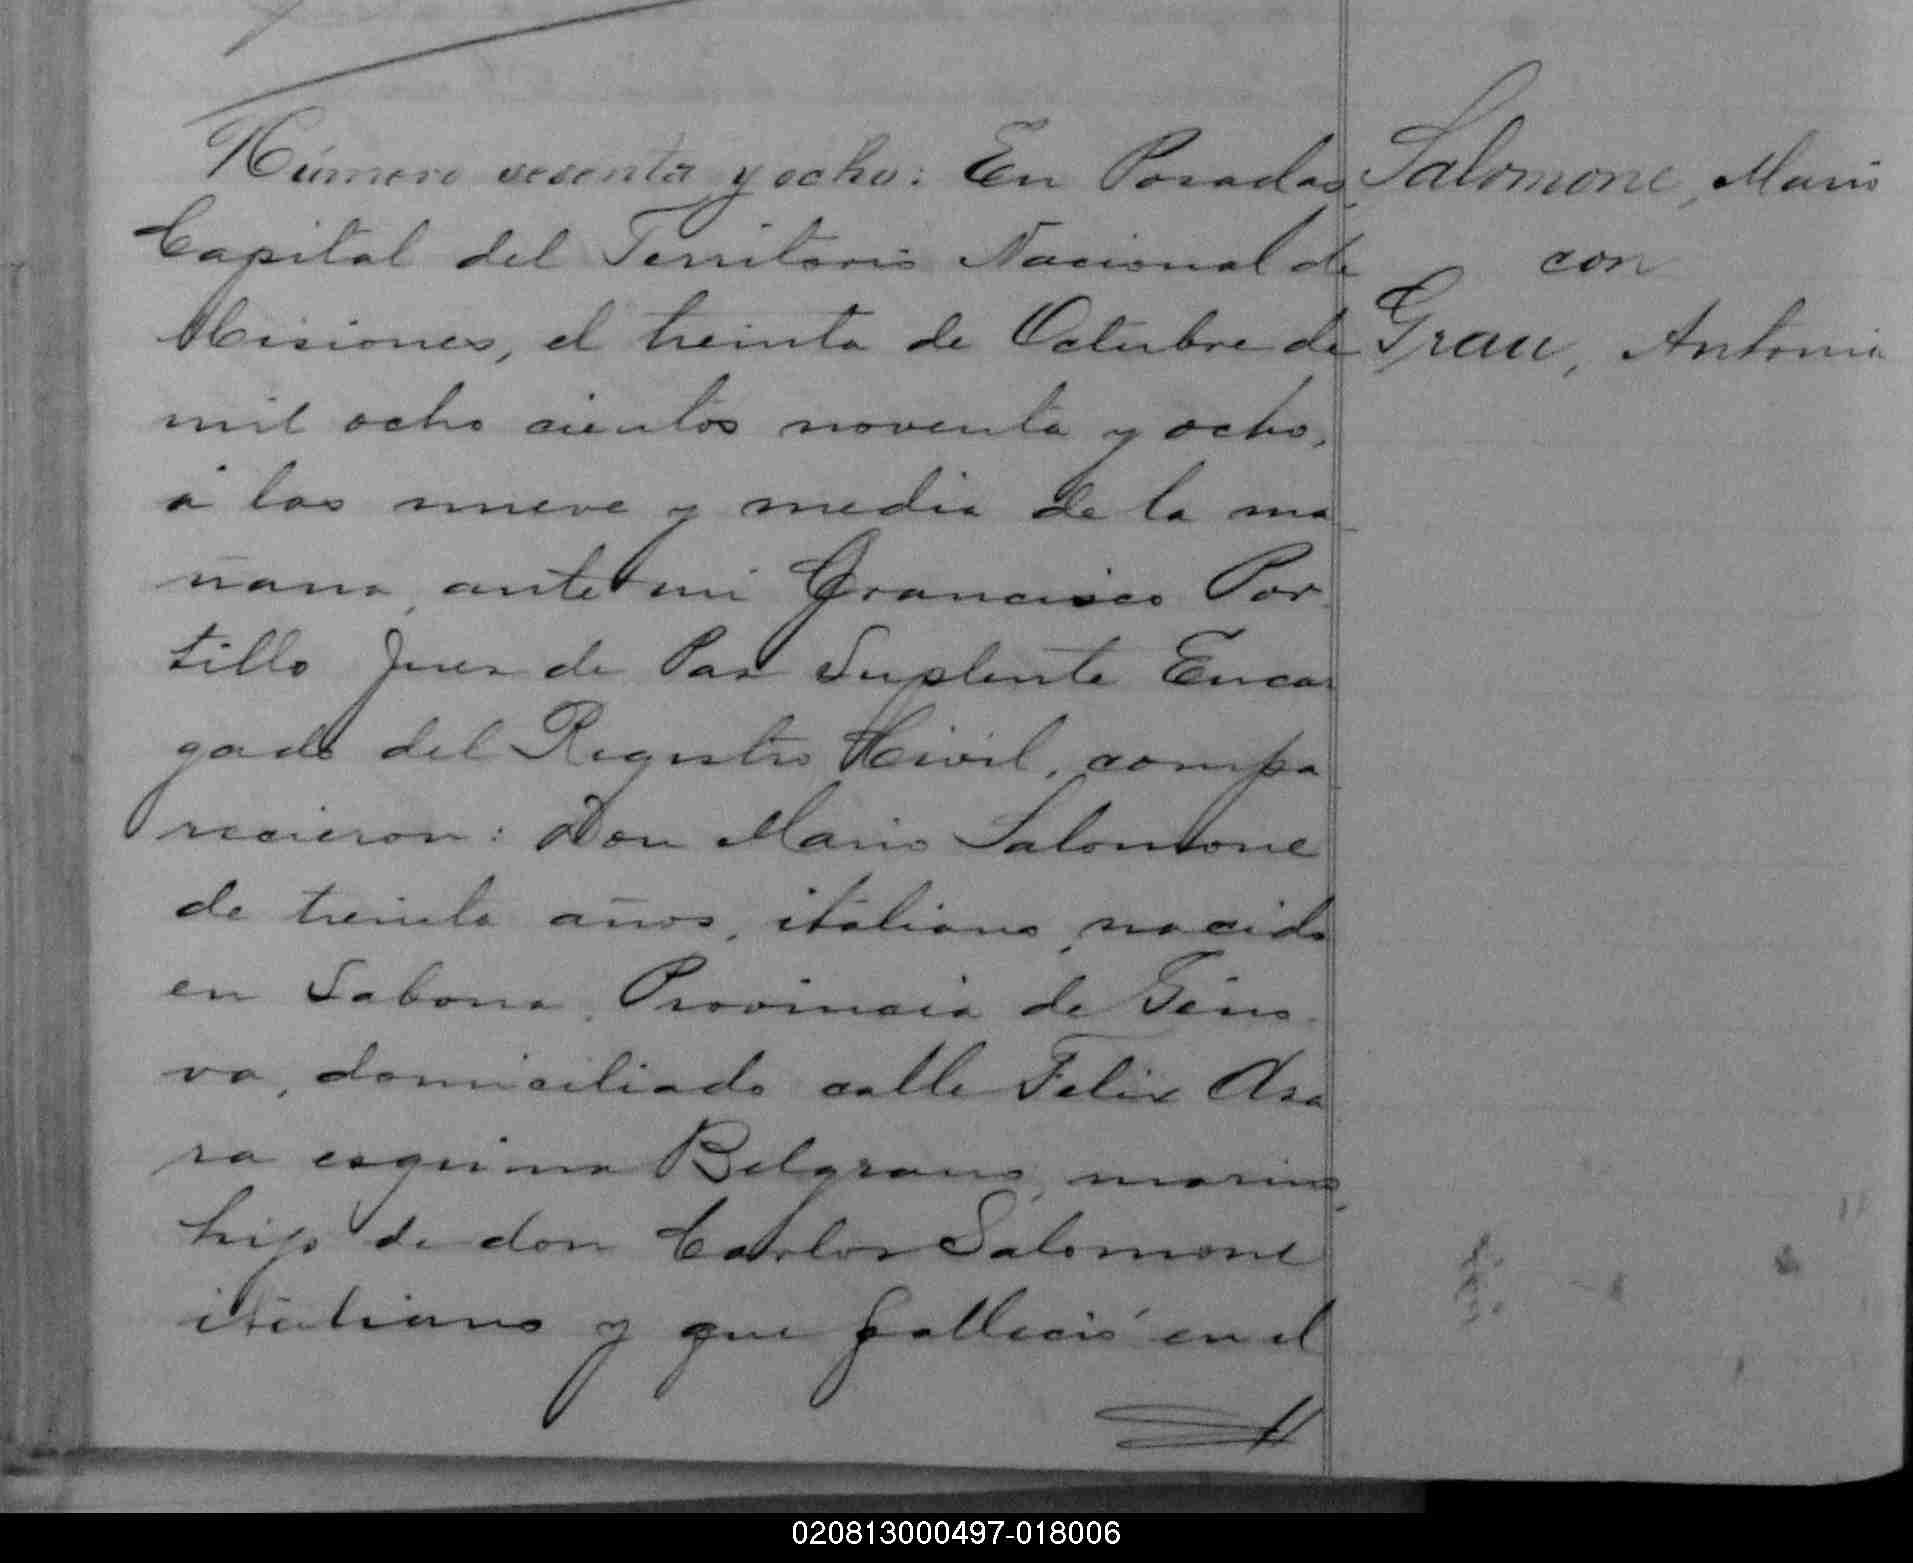 Número sesenta y ocho: En Posadas,
Capital del Territorio Nacional de
Misiones, el treinta de Octubre de
mil ocho cientos noventa y ocho,
á las nueve y media de la ma
ñana, ante mi Francisco Por
tillo Juez de Paz Suplente Encar
gado del Registro Civil, compa
recieron: Don Mario Salomone
de treinta años, italiano, nacido
en Sabona, Provincia de Géno
va, domiciliado calle Felix Aza
ra esquina Belgrano, marino,
hijo de don Carlos Salomone
italiano y que falleció en el
Salomone, Mario
con
Grau, Antonia
020813000497-018006